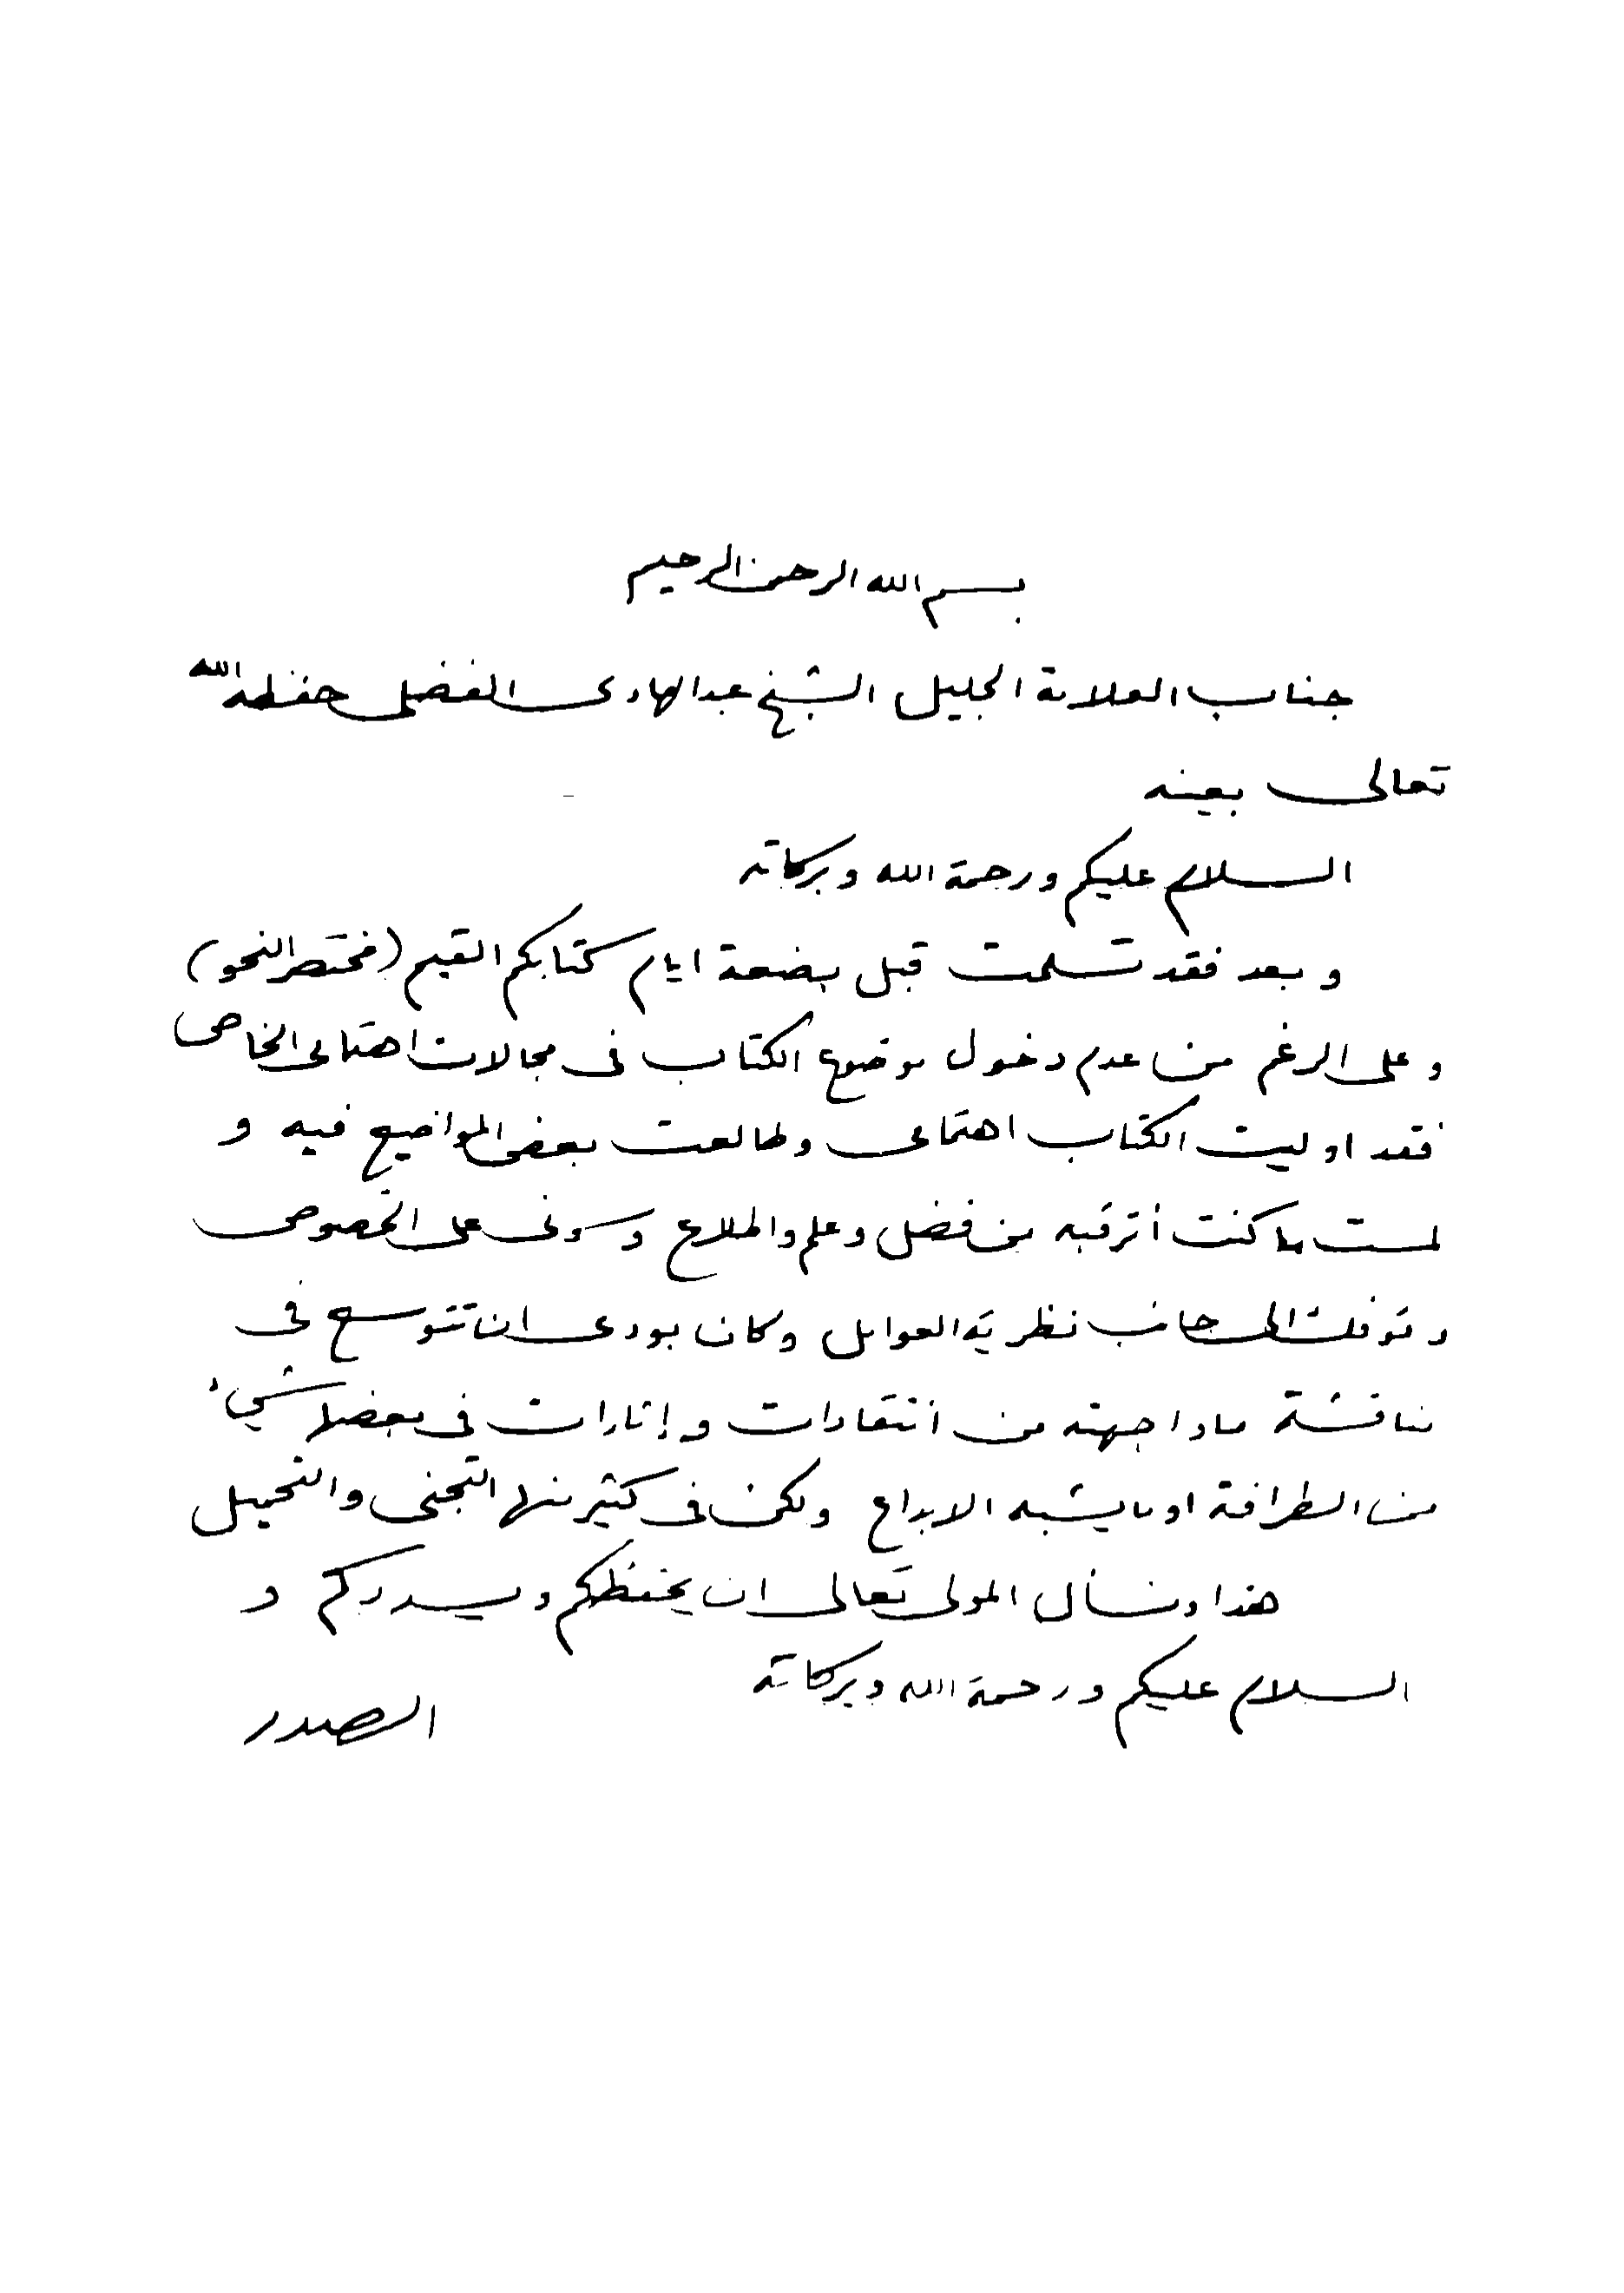 بسم الله الرحمن الرحيم
جناب العلامة الجليل الشيخ عبد الهادى الفضلى حفظه الله
تعالى بعينه
السلام عليكم ورحمة الله وبركاته
وبعد فقد تسلمت قبل بضعة ايام كتابكم القيم (مختصر النحو)
وعلى الرغم من عدم دخول موضوع الكتاب فى مجالات اهتمامى الخاص
فقد اوليت الكتاب اهتمامى وطالعت بعض المواضيع فيه و
لمست ما كنت أترقبه من فضل وعلم واطلاع وسرنى على الخصوص
وقوفك الى جانب نظرية العوامل وكان بودى ان تتوسع فى
مناقشة ما واجهته من انتقادات وإثارات فى بعضها شيء
من الطرافة او ما يشبه الابداع ولكن فى كثير منها التجنى والتحميل
هذا ونسأل المولى تعالى ان يحفظكم ويسددكم و
السلام عليكم ورحمة الله وبركاته
الصدر